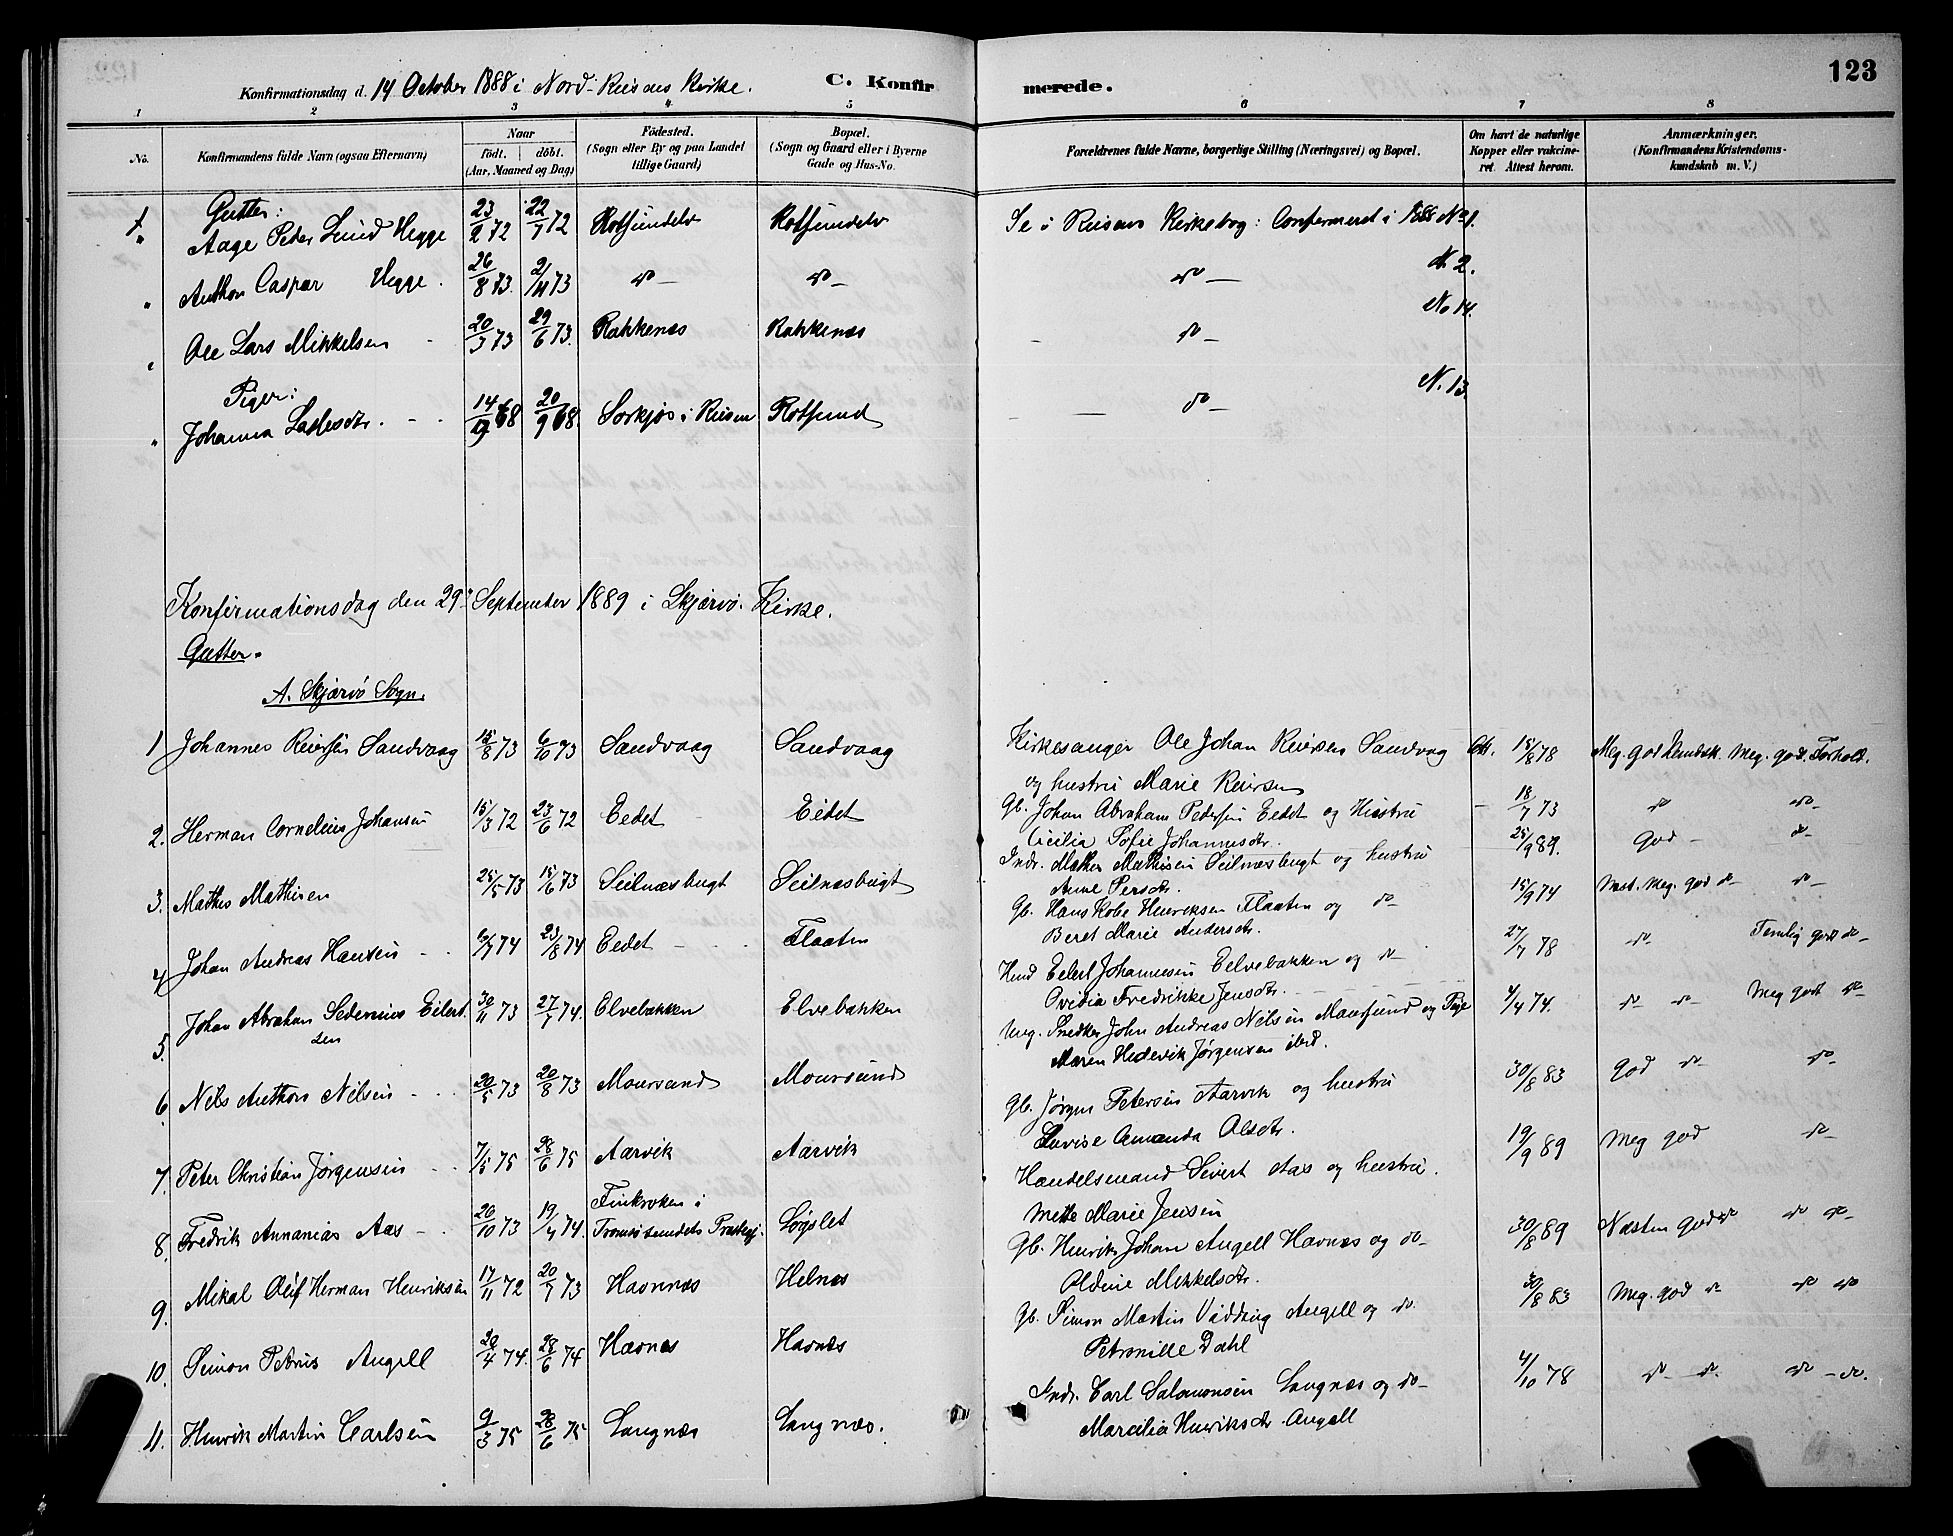 123
Konfirmationsdag d. 14 October 1888 i Nord-Reisens Kirke. C. Konfirmerede.
1 2 3 4 5 6 7 8
No. Konfirmandens fulde Navn (ogsaa Efternavn) Naar født. døbt. (Aar, Maaned og Dag) Fødested. (Sogn eller By og paa Landet tillige Gaard) Bopæl. (Sogn og Gaard eller i Byerne Gade og Hus-No. Forældrenes fulde Navne, borgerlige Stilling (Næringsvei) og Bopæl. Om havt de naturlige Kopper eller vakcineret. Attest herom. Anmærkninger. (Konfirmandens Kristendomskundskab m. V.)
Gutter:
" Aage Peter Lund Hegge 23/2 72 22/7 72 Rotsundelv Rotsundelv Se i Reisens Kirkebog: Confermeret i 1888 No 1.
" Anthon Caspar Hegge. 26/8 73. 2/11 73 do — do — do — No 2.
" Ole Lars Mikkelsen - 20/3 73 29/6 73. Rakkenæs Rakkenæs do — No 14.
Piger:
" Johanna Lassesdtr. - - 14/9 68 20/9 68. Sorkjos i Reisen Rotsund do — N. 13
Konfirmationsdag den 29de September 1889 i Skjærvø Kirke.
Gutter.
A. Skjærvø Sogn.
1 Johannes Reiersen Sandvaag 15/8 73 6/10 73 Sandvaag Sandvaag Kirkesanger Ole Johan Reiersen Sandvaag Att. 15/8 78 Meg. god Kundsk. Meg. godt Forhold.
og hustru Marie Reiersen
2. Herman Cornelius Johansen 15/3 72 23/6 72 Eedet Eidet Gb. Johan Abraham Pedersen Eedet og Hustru - 18/7 73 do do—
Cecilia Sofie Johannesdtr.
3. Mathis Mathisen 25/5 73 15/6 73 Seilnæsbugt Seilnæsbugt Indr. Mathis Mathisen Seilnæsbugt og hustru 25/9 89. God — do—
Anne Persdtr.
4 Johan Andreas Hansen - - 6/7 74 23/8 74 Eedet - - Flaaten Gb. Hans Kobe Henriksen Flaaten og do— 15/9 74 Med. meg. god do— do—
Beret Marie Andersdtr.
5. Johan Abraham Sedenius Eilertsen 30/11 73 27/7 74. Elvebakken Elvebakken Huusmd Eilert Johannesen Eelvebakken og do— 27/7 78 do— Temlig godt do—
Ovidia Fredrikke Jensdtr.
6. Nils Anthon Nilsen - - 20/5 73 20/8 73 Moursund Moursund Ung. Snedker John Andreas Nilsen Maursund og Pige 4/4 74. do— do— Meg godt do—
Maren Hedevik Jørgensen ibid.
7. Peter Christian Jørgensen - - 7/5 75 28/6 75 Aarvik Aarvik Gb. Jørgen Petersen Aarvik og hustru 30/8 83 God do— do—
Lovise Amanda Olsdtr.
8. Fredrik Annanias Aas - - 20/10 73 19/4 74. Finkroken i Tromsøsundets Præstegj. Løgslet Handelsmand Sivert Aas og hustru. 19/9 89 Meg god do—
Mette Marie Jensen
9. Mikal Oluf Herman Henriksen 17/11 72 20/7 73 Havnnæs Helnæs Gb. Henrik Johan Angell Havnæs og do— 30/8 89 Næsten god do do do—
Oldine Mikkelsdtr.
10. Simon Petrus Angell 20/4 74. 28/6 74 Havnæs Havnæs Gb. Simon Martin Vidding Angell og do. 30/8 83 Meg. god do do do
Petronille Dahl
11. Henrik Martin Carlsen 9/3 75 28/6 75 Langnæs Langnæs. Indr. Carl Salamonsen Langnæs og do— 4/10 78 do— do. do — do.
Marcilia Henriksdtr Angell